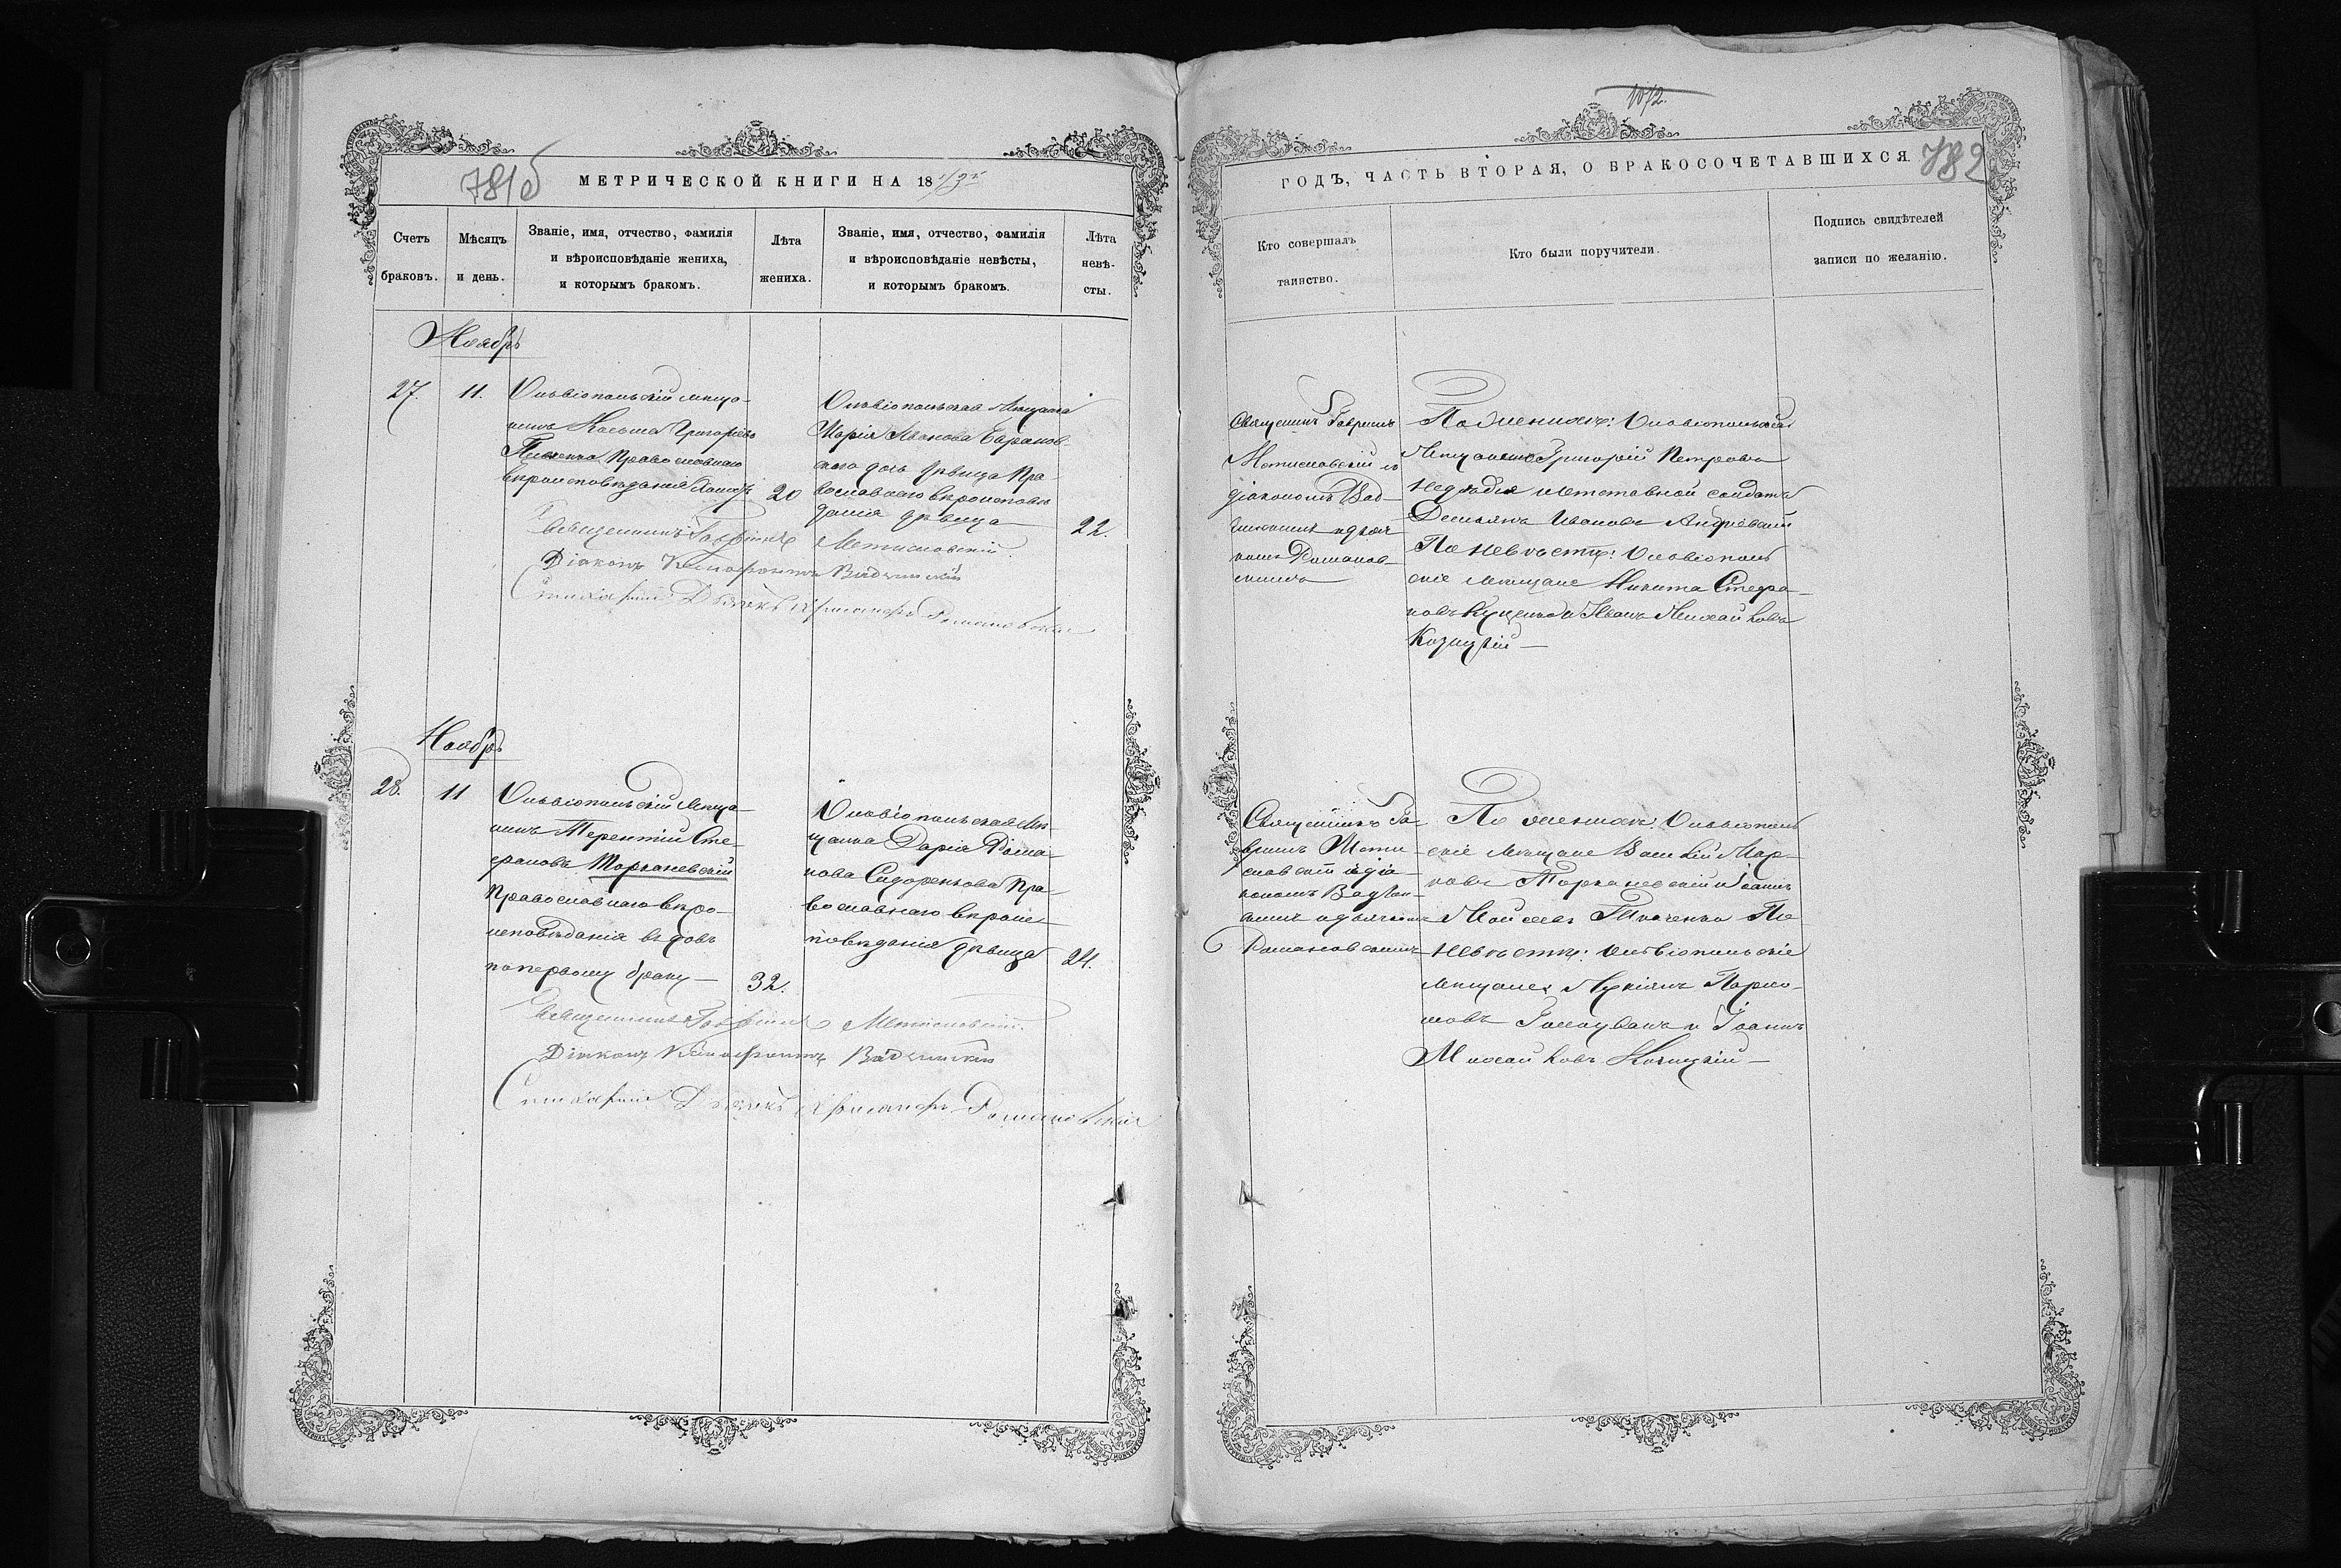 781б
МЕТРИЧЕСКОЙ КНИГИ НА 18
Счетъ браковъ.
Мѣсяцъ и день.
Званіе, имя, отчество, фамилія
и вѣроисповѣданіе жениха,
и которымъ бракомъ.
Лѣта
жениха.
Званіе, имя, отчество, фамилія
и вѣроисповѣданіе невѣсты,
и которымъ бракомъ.
Лѣта
невѣ-
сты.
Ноябрь
27.
11.
Ольвіопольскій мѣща-
нинъ Косьма Григоріевъ
Православнаго
вѣроисповѣданія
20
Ольвіопольская Мѣщанка
Марія Иванова
дѣвица Пра-
вославнаго вѣроисповѣ
данія дѣвица
22.
Священникъ Гавріилъ Метиславскій
Діаконъ Ксенофонтъ
Стихарный Дьячекъ Романовскій
Ноябрь
28.
11
Ольвіопольскій Мѣща-
нинъ Терентій Сте-
фановъ Торканевскій
Православнаго вѣро-
исповѣданія вдовъ
по первому браку
32.
Ольвіопольская Мѣ-
щанка Дарія Рома-
нова Сидоренкова Пра-
вославнаго вѣроис-
повѣданія дѣвица
24.
Священникъ Гавріилъ Метиславскій
Діаконъ Ксенофонтъ
Стихарный Дьячекъ Романовскій
1072.
ГОДЪ, ЧАСТЬ ВТОРАЯ, О БРАКОСОЧЕТАВШИХСЯ.
782
Кто совершалъ
таинство.
Кто были поручители.
Подпись свидѣтелей
записи по желанію.
Священникъ Гавріилъ
Метиславскій съ
діакономъ
Романов-
скимъ
По женихѣ: Ольвіопольскій
Мѣщанинъ Григорій Петровъ
и отставной солдатъ
Демьянъ Ивановъ Андріевскій
По невѣстѣ: Ольвіополь
скіе мѣщане Никита Стефа-
новъ Куценко и Иванъ Михайловъ
Козицкій
Священникъ Га-
вріилъ Мети-
славскій съ діа-
кономъ
Романовскимъ
По женихѣ: Ольвіополь
скіе мѣщане Василій Мар-
ковъ Торканевскій и Іоаннъ
Моисеевъ Ткаченко По
невѣстѣ: Ольвіопольскіе
мѣщане Лукіянъ
и Іоаннъ
Михайловъ Козицкій